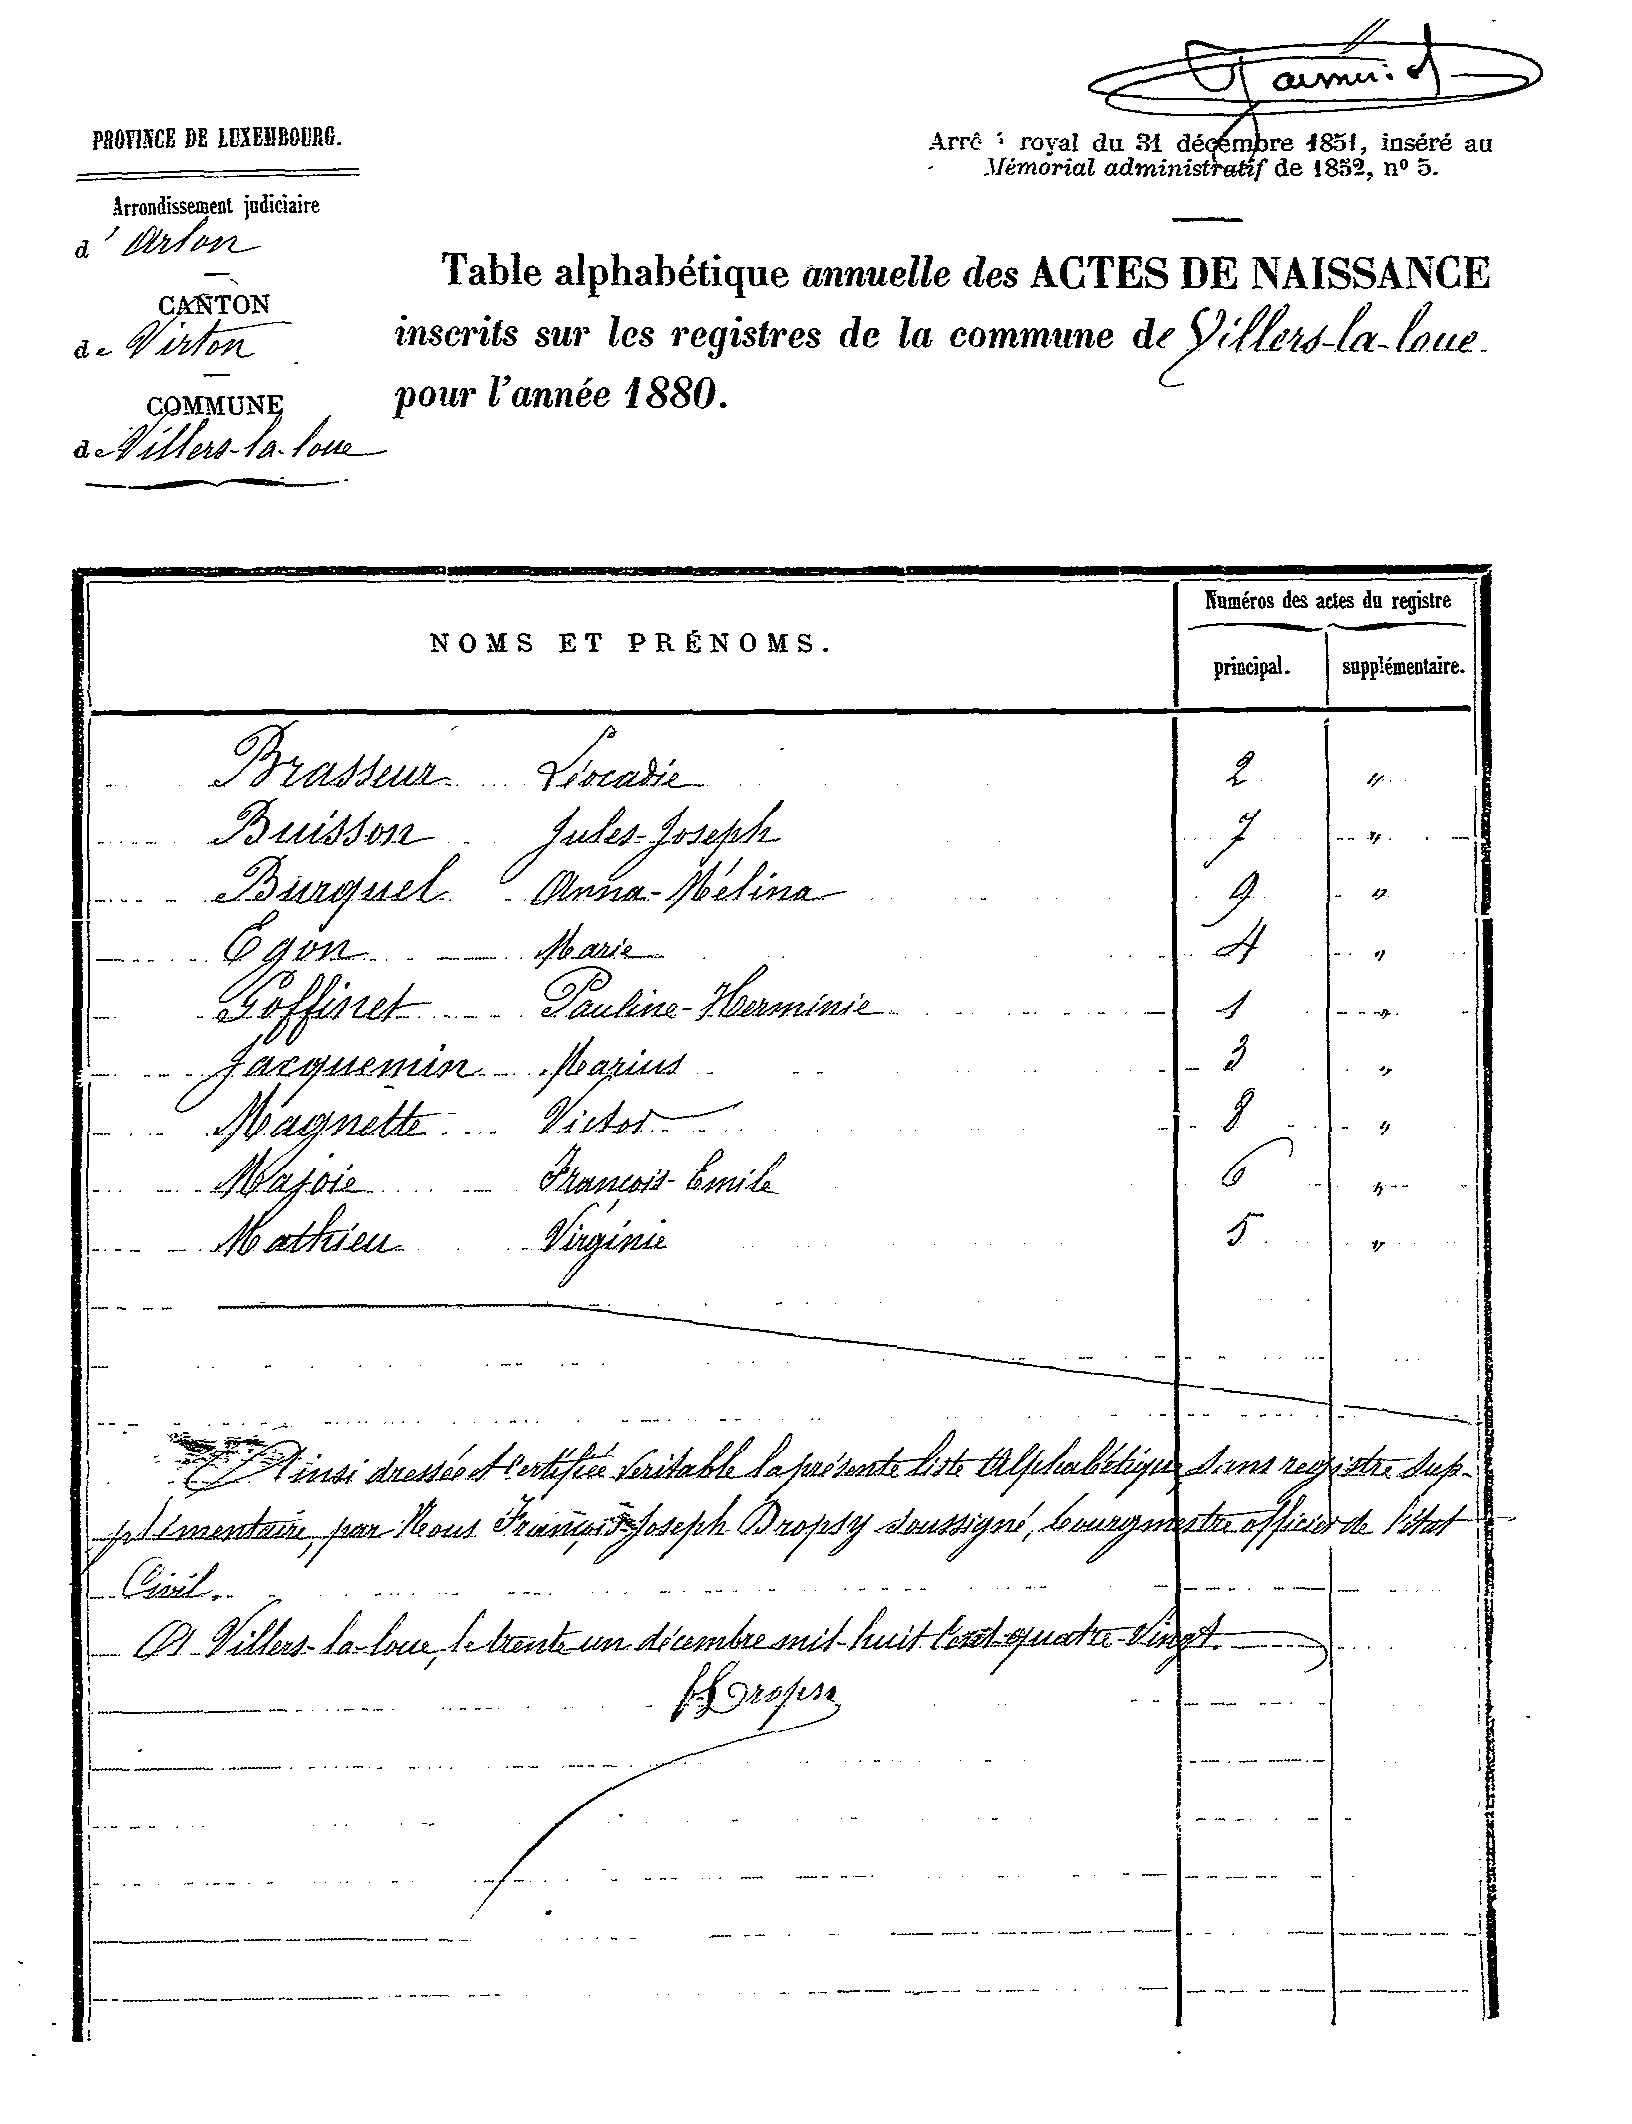 PROVINCE DE LUXEMBOURG.
Arrondissement judiciaire
d' Arlon
CANTON
de Virton
COMMUNE
de Villers-la-loue
Arrê royal du 31 décembre 1851, inséré au
Mémorial administratif de 1852, nº 5.
Table alphabétique annuelle des ACTES DE NAISSANCE
inscrits sur les registres de la commune de Villers-la-loue.
pour l'année 1880.
NOMS ET PRÉNOMS.
Numéros des actes du registre
principal. supplémentaire.
Brasseur Léocadie 2 "
Buisson Jules-Joseph 7 "
Burquel Anna-Mélina 9 "
Egon Marie 4 "
Goffinet Pauline-Herminie 1 "
Jacquemin Marius 3 "
Magnette Victor 8 "
Majoie François-Emile 6 "
Mathieu Virginie 5 "
Ainsi dressée et Certifiée Veritable la présente liste Alphabétique, sans registre sup-
plémentaire, par Nous François-Joseph Dropsy soussigné, bourgmestre officier de l'état
Civil.
A Villers-la-loue, le trente un décembre mil-huit Cent-quatre-Vingt.
Dropsy